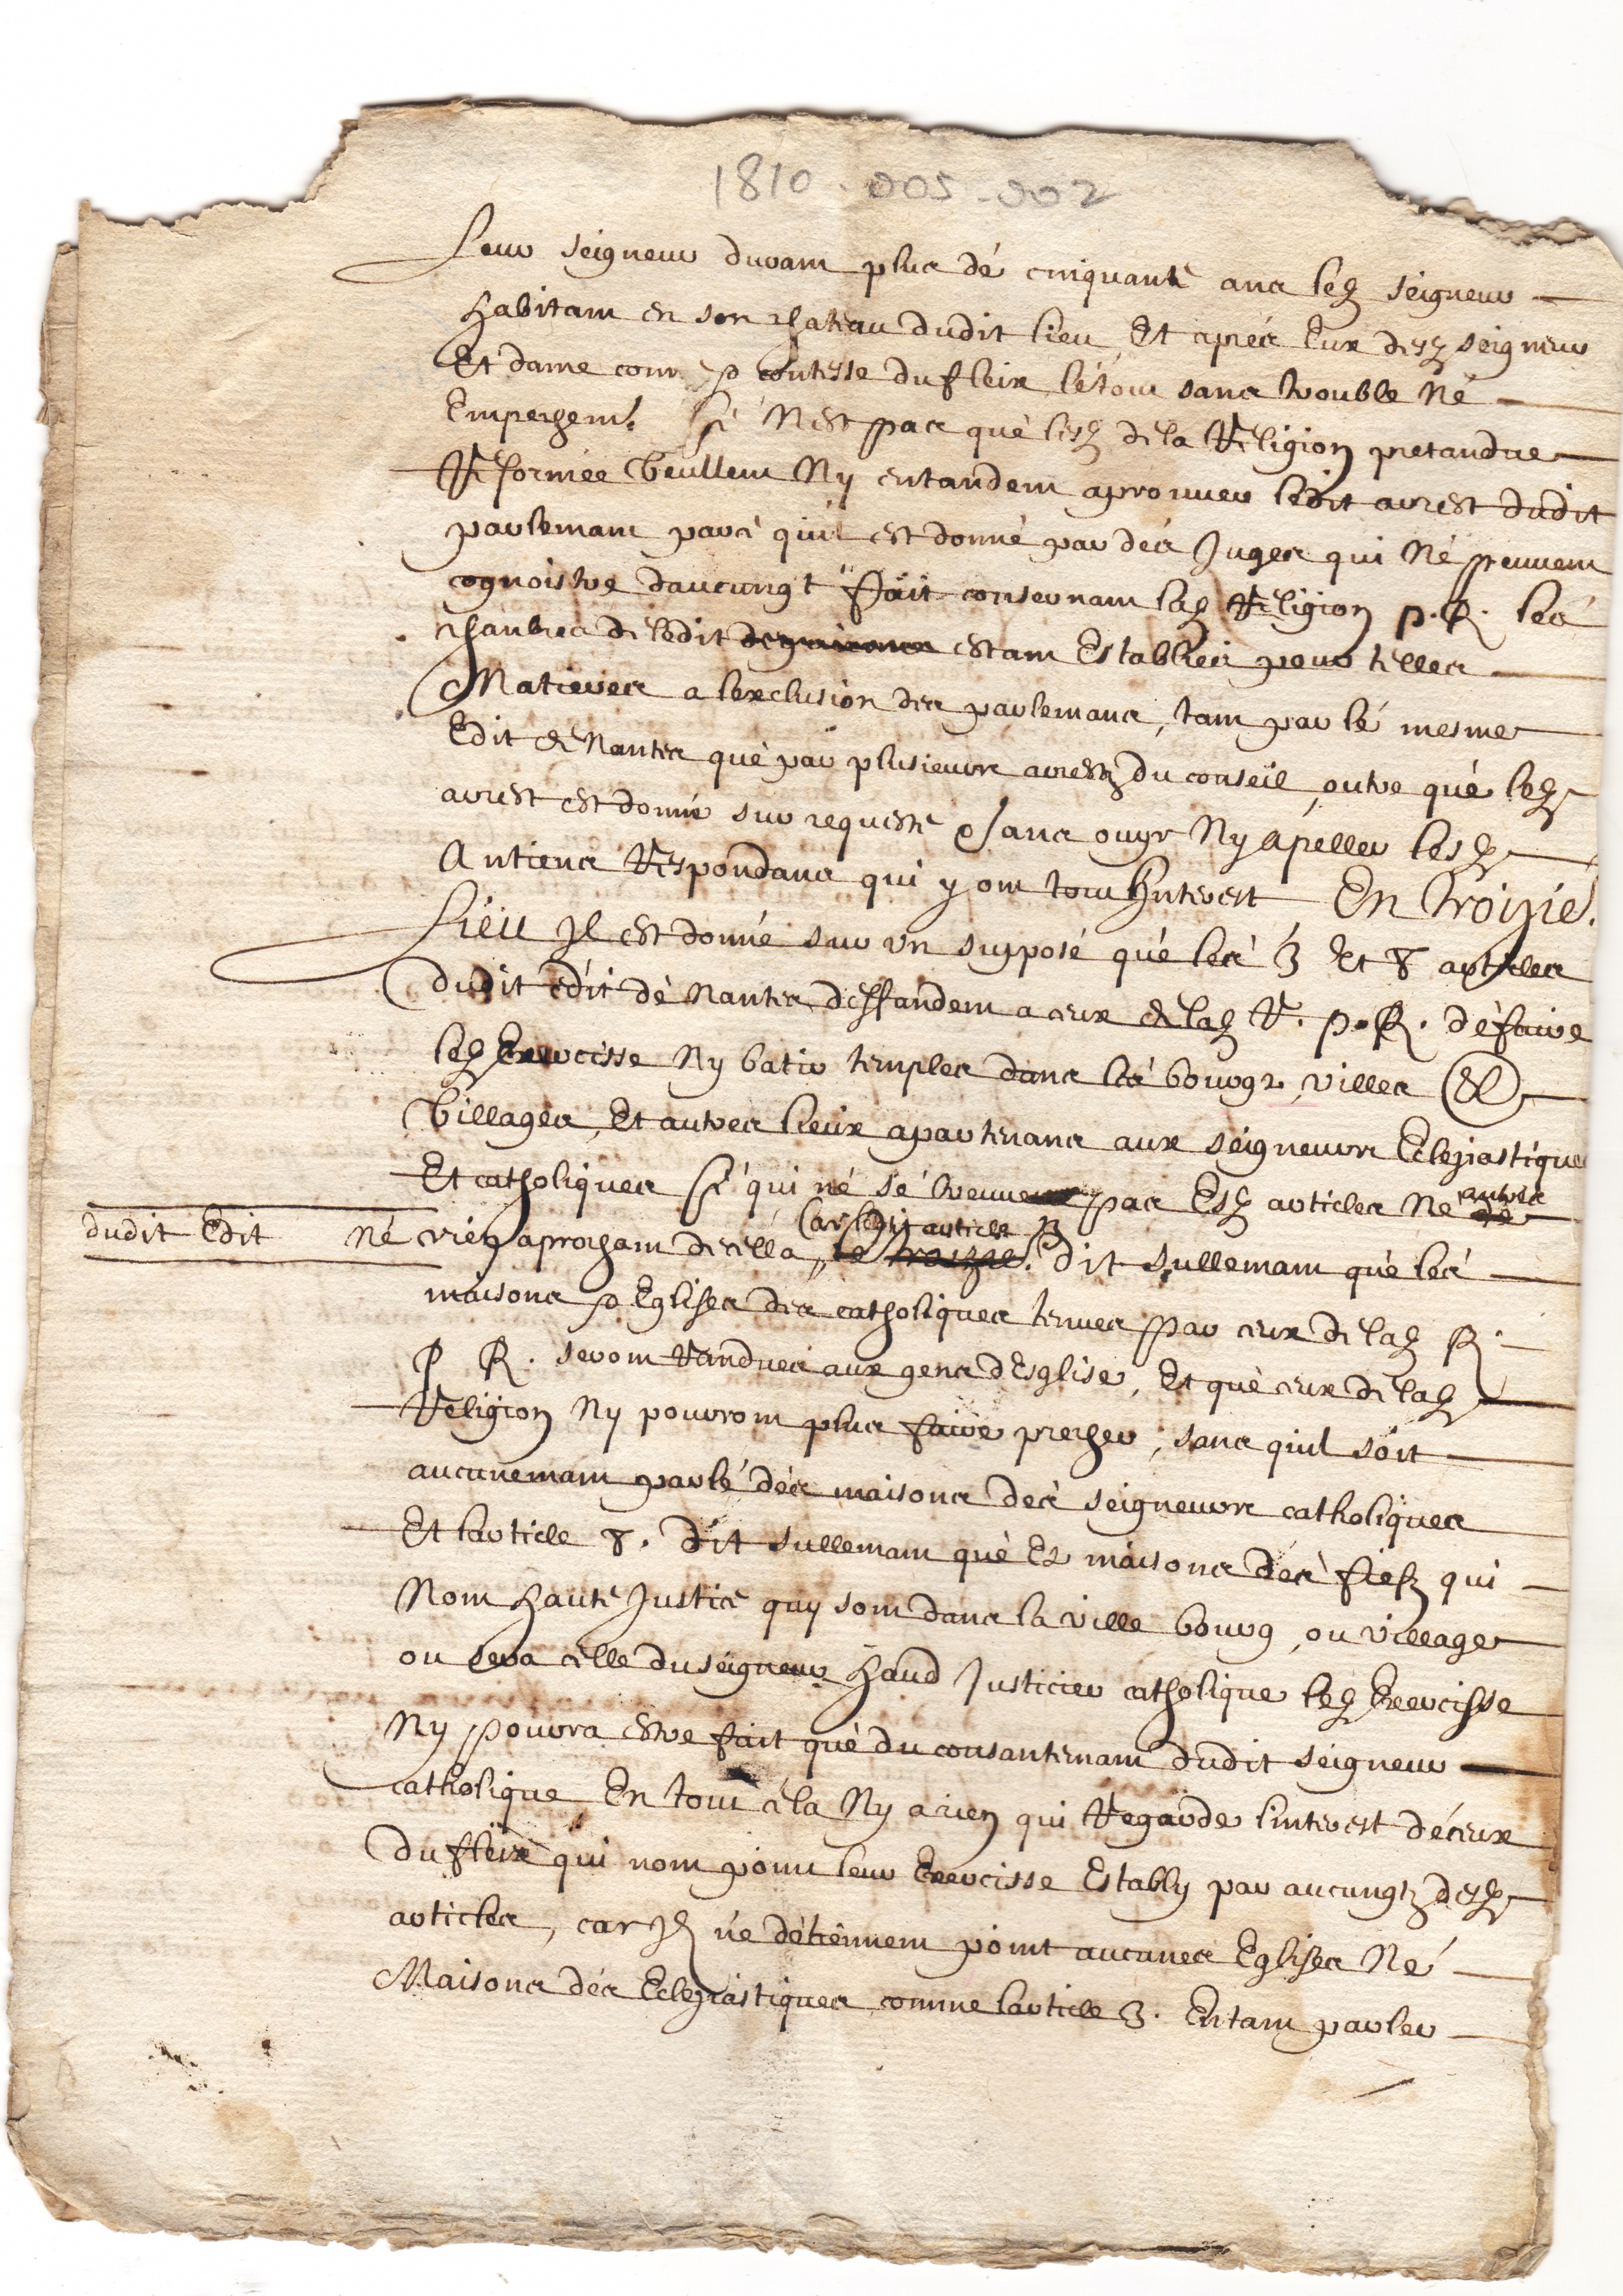 1810-005-002
Leur seigneur durant plus dé cinquante ans led seigneur
habitant en son chateau dudit lieu, Et aprés Eux desd seigneur
Et dame comte & contesse du fleix, lé tout sans trouble Né
Empechemt. Cé N'est pas què lesd de la Religion pretandue
Reformée Veullent Ny entandent aprouver ledit arrest dudit
parlemant parcè quil est donné par dés Juges qui Né peuvent
cognoistre daucungt fait consernant lad Religion p. R. lés
chanbres de ledit estant Establies pour telles
Matieres a lexclusion des parlemans, tant par lé mesme
Edit de Nantes què par plusieurs arrestz du conseil, outre què led
arrest est donné sur requeste Sans ouyr Ny apeller lesd
Antiens Respondans qui y ont tout Interest En Troizié.
Lieu Jl est donné sur vn supposé què lés 3 Et 8 articles
dudit édit dè Nantes deffandent a ceux de lad R. p. R. dé faire
led Exercisse Ny batir temples dans lés bourgs, villes &
Villages, Et autres lieux apartenans aux seigneurs Eclesiastiques
Et catholiques Cé qui né sé treuve pas Esd articles Ne autres
dudit Edit Né rien aprochant de cella, Car ledit article 3 dit sullemant què lés
maisons & Eglises des catholiques tenues par ceux de lad R.
P R. seront Randues aux gens dEsglise, Et què ceux de lad
Religion Ny pourront plus faire precher, sans quil soit
aucunemant parlé dés maisons dés seigneurs catholiques
Et larticle 8. dit sullemant què Es maisons dés fiefz qui
Nont haute Justice quy sont dans la ville bourg, ou village
ou sera celle du seigneur haud Justicier catholique led Exercisse
Ny pourra estre fait què du consantemant dudit seigneur
catholique En tout cela Ny a rien qui Regarde linterest dé ceux
du fleix qui nont point leur Exercisse Estably par aucungtz desd
articles, car Jlz né détiennent point aucunes Eglises Né
Maisons dés Eclesiastiques comme larticle 3. Entant parler